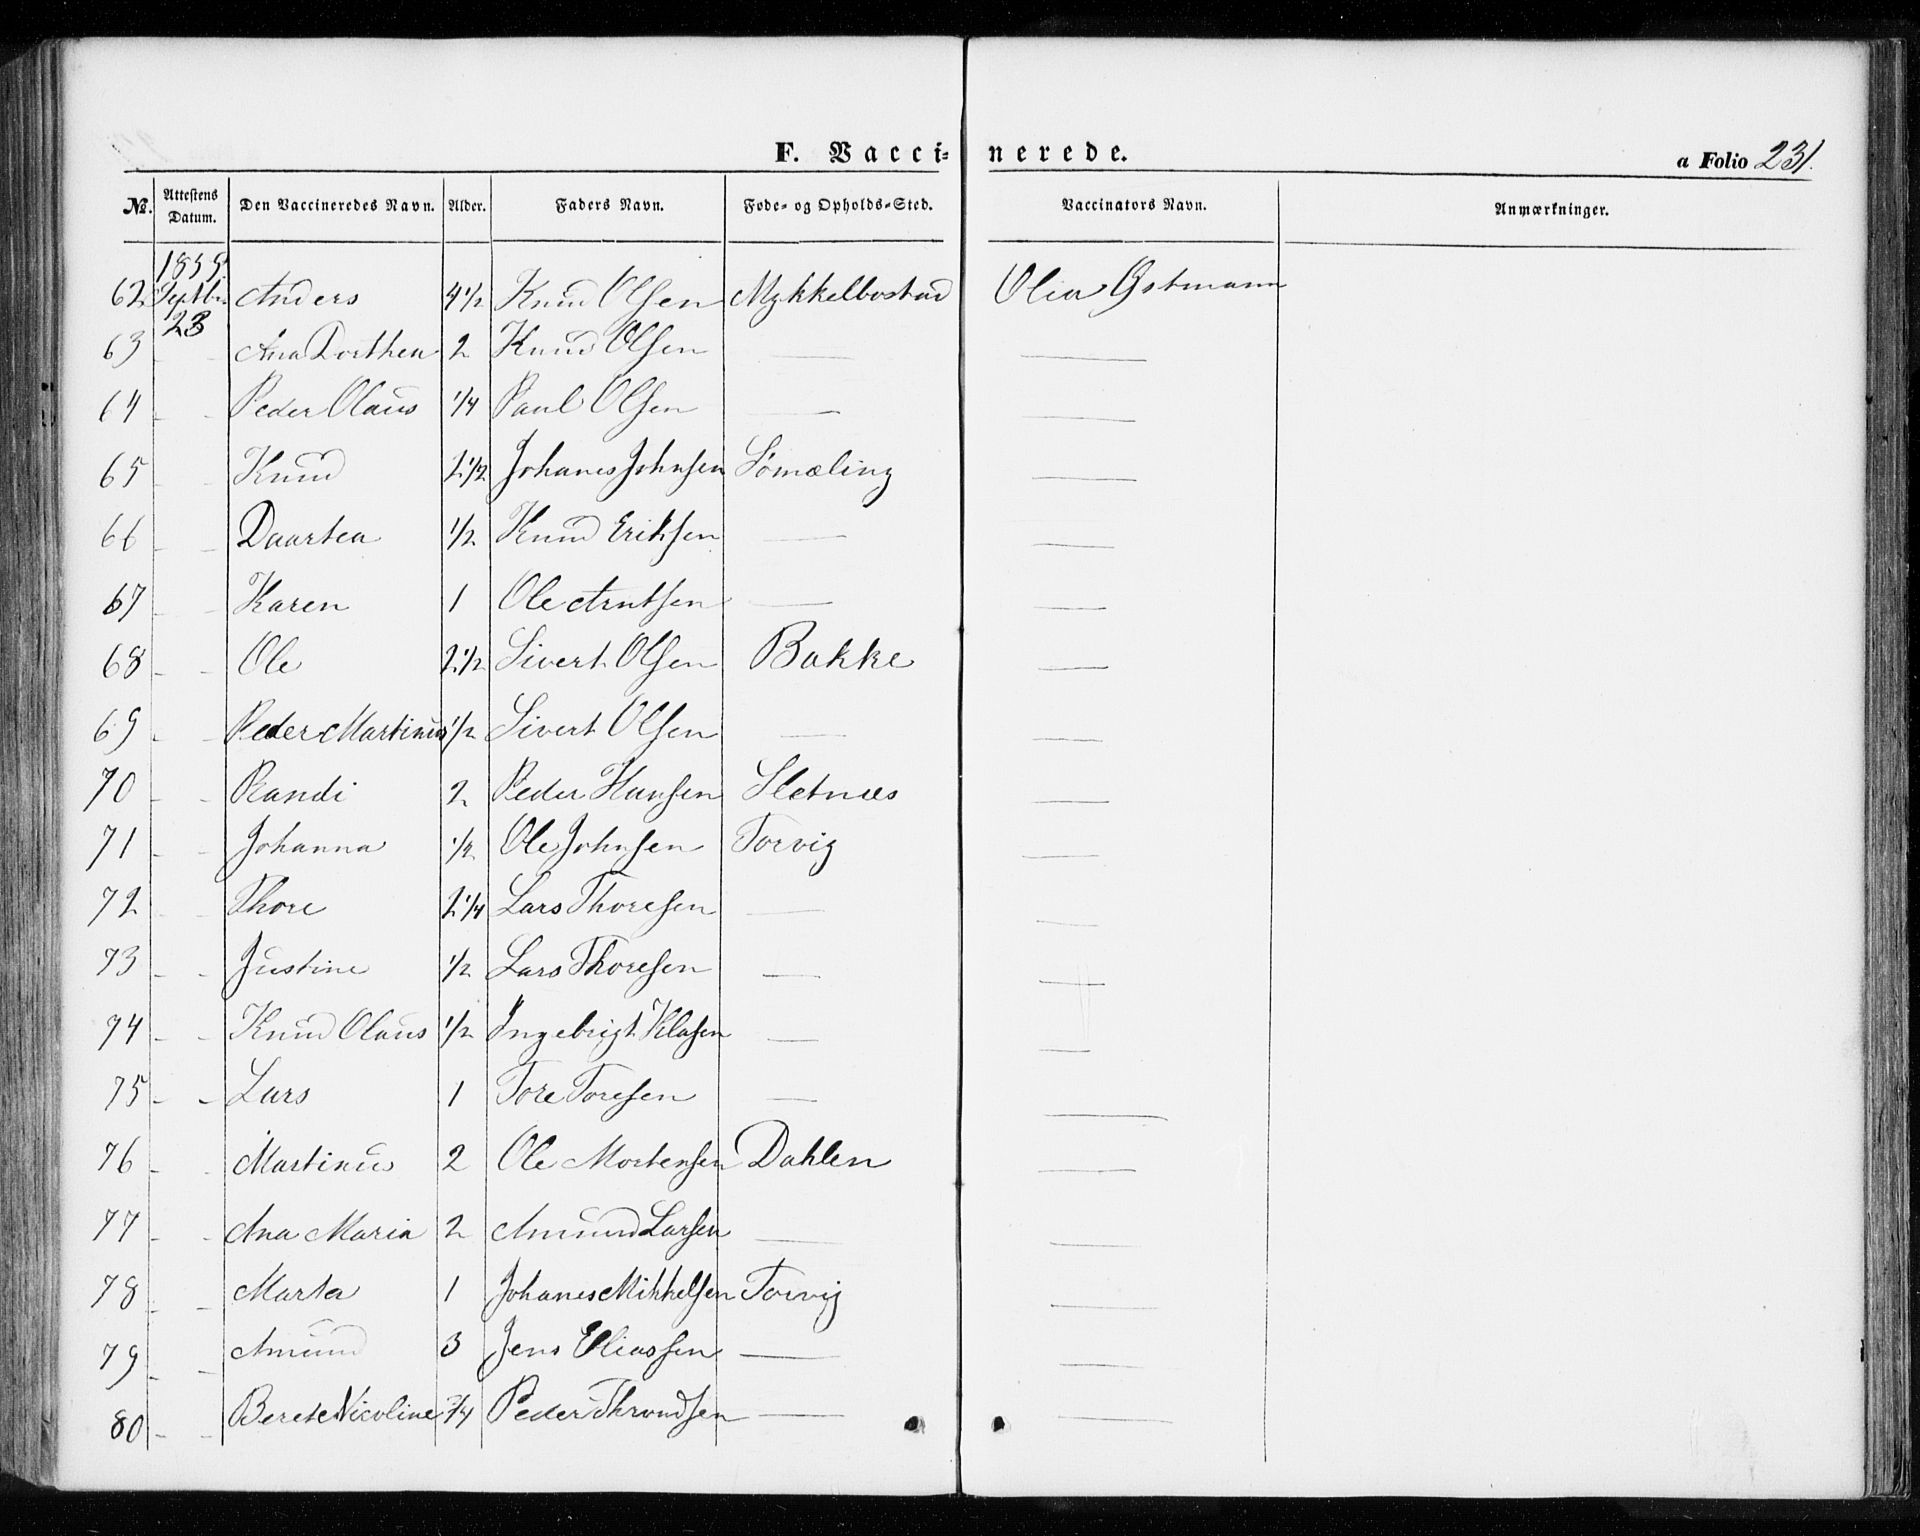 F. Vaccinerede. a Folio 231.
No. Attestens Datum. Den Vaccineredes Navn. Alder. Faders Navn. Føde- og Opholds-Sted. Vaccinators Navn. Anmærkninger.
1855
62 Septbr. 23 Anders 4 1/2 Knud Olsen Mykkelbostad Olia Gstmann
63 - - Ana Dorthea 2 Knud Olsen — —
64 - - Peder Olaus 1/4 Paul Olsen — —
65 - - Knud 2 1/2 Johanes Johnsen Sømæling —
66 - - Daartea 1/2 Knud Eriksen — —
67 - - Karen 1 Ole Arntsen — —
68 - - Ole 2 1/2 Sivert Olsen Bakke —
69 - - Peder Martinus 1/2 Sivert Olsen — —
70 - - Randi 2 Peder Hansen Sletnæs —
71 - - Johanna 1/2 Ole Johnsen Torvig —
72 - - Thore 2 1/4 Lars Thoresen — —
73 - - Justine 1/2 Lars Thoresen — —
74 - - Knud Olaus 1/2 Ingebrigt Klasen — —
75 - - Lars 1 Tore Toresen — —
76 - - Martinus 2 Ole Mortensen Dahlen —
77 - - Ana Maria 2 Amund Larsen — —
78 - - Marta 1 Johanes Mikkelsen Torvig —
79 - - Amund 3 Jens Eliassen — —
80 - - Berete Nicoline 3/4 Peder Throndsen — —